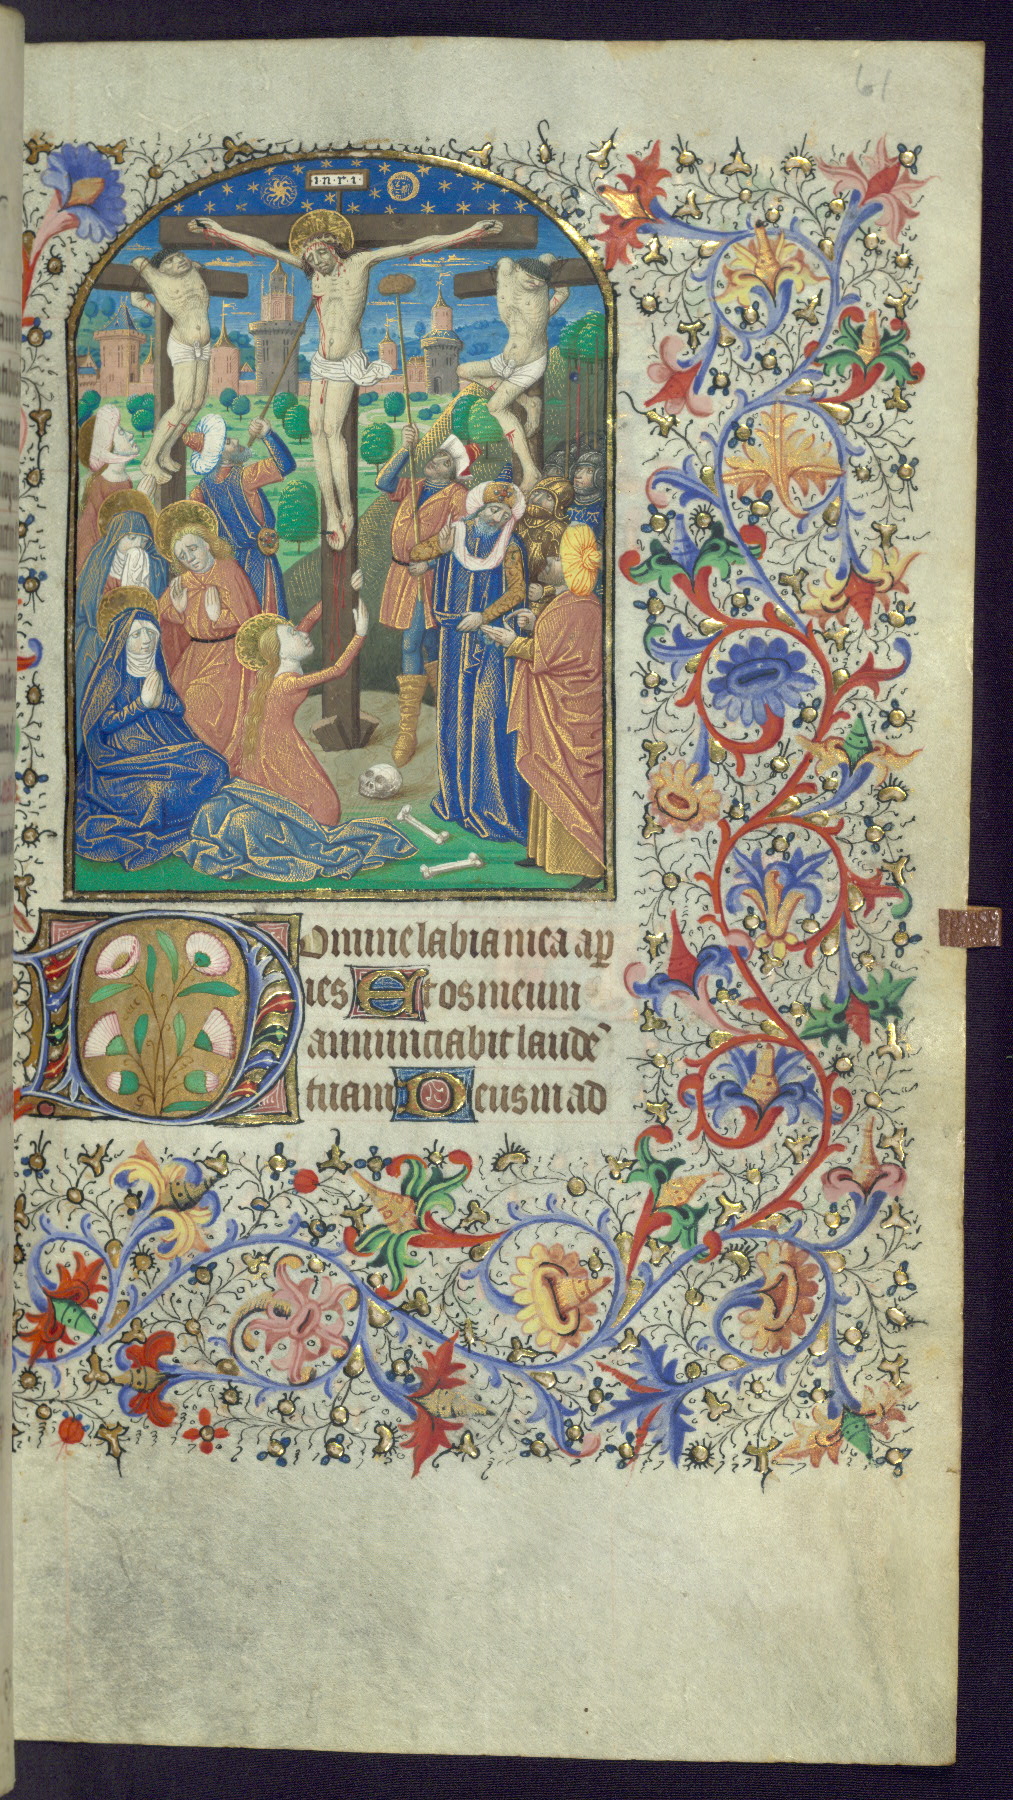 61
i·n·r·i·
Domine labia mea ap
ies Et os meum
annunciabit laudē
tuam Deus in ad